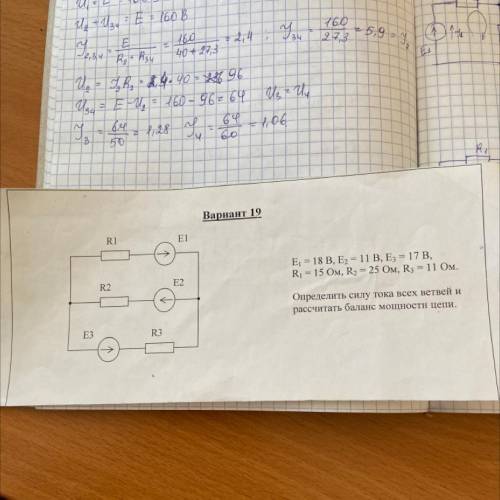 U₂ = U₃₄ = E = 160 В
J₂,₃,₄ = E / R₂ = R₃₄ = 160 / 40 + 27,3 = 2,4 , J₃₄ = 160 / 27,3 = 5,9 =
U₂ = J₂R₂ = 2,4 · 40 = 96
U₃₄ = E - U₂ = 160 - 96 = 64 U₃ = U₄
J₃ = 64 / 50 = 1,28 J₄ = 64 / 60 = 1,06
E1
R₁
Вариант 19
R1
E1
R2
E2
E3
R3
E₁ = 18 В, E₂ = 11 В, E₃ = 17 В,
R₁ = 15 Ом, R₂ = 25 Ом, R₃ = 11 Ом.
Определить силу тока всех ветвей и
рассчитать баланс мощности цепи.